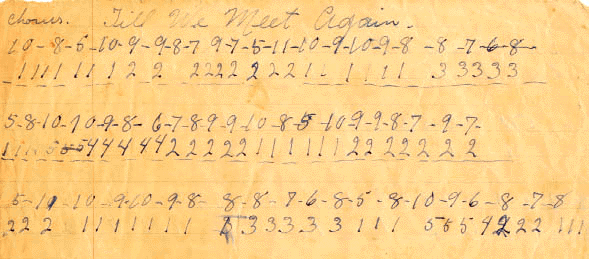 chorus. Till We Meet Again.
10-8-5-10-9-9-8-7 9-7-5-11-10-9-10-9-8 -8-7-6-8-
1111 11 1 2 2 222 2 2 2 2 1 1 1 1 1 1 3 3 3 3 3
5-8-10-10-10-9-8- 6-7-8-9-9-10-8-5-10-9-9-8-7-9-7-
4 4 4 4 4 4 2 2 2 2 2 1 1 1 1 1 1 2 2 2 2 2 2 2
5-11-10-9-10-9-8- 8-8-7-6-8-5-8-10-9-6-8-7-8
2 2 2 1 1 1 1 1 1 1 3 3 3 3 3 1 1 1 5 5 5 4 2 2 2 1 1 1